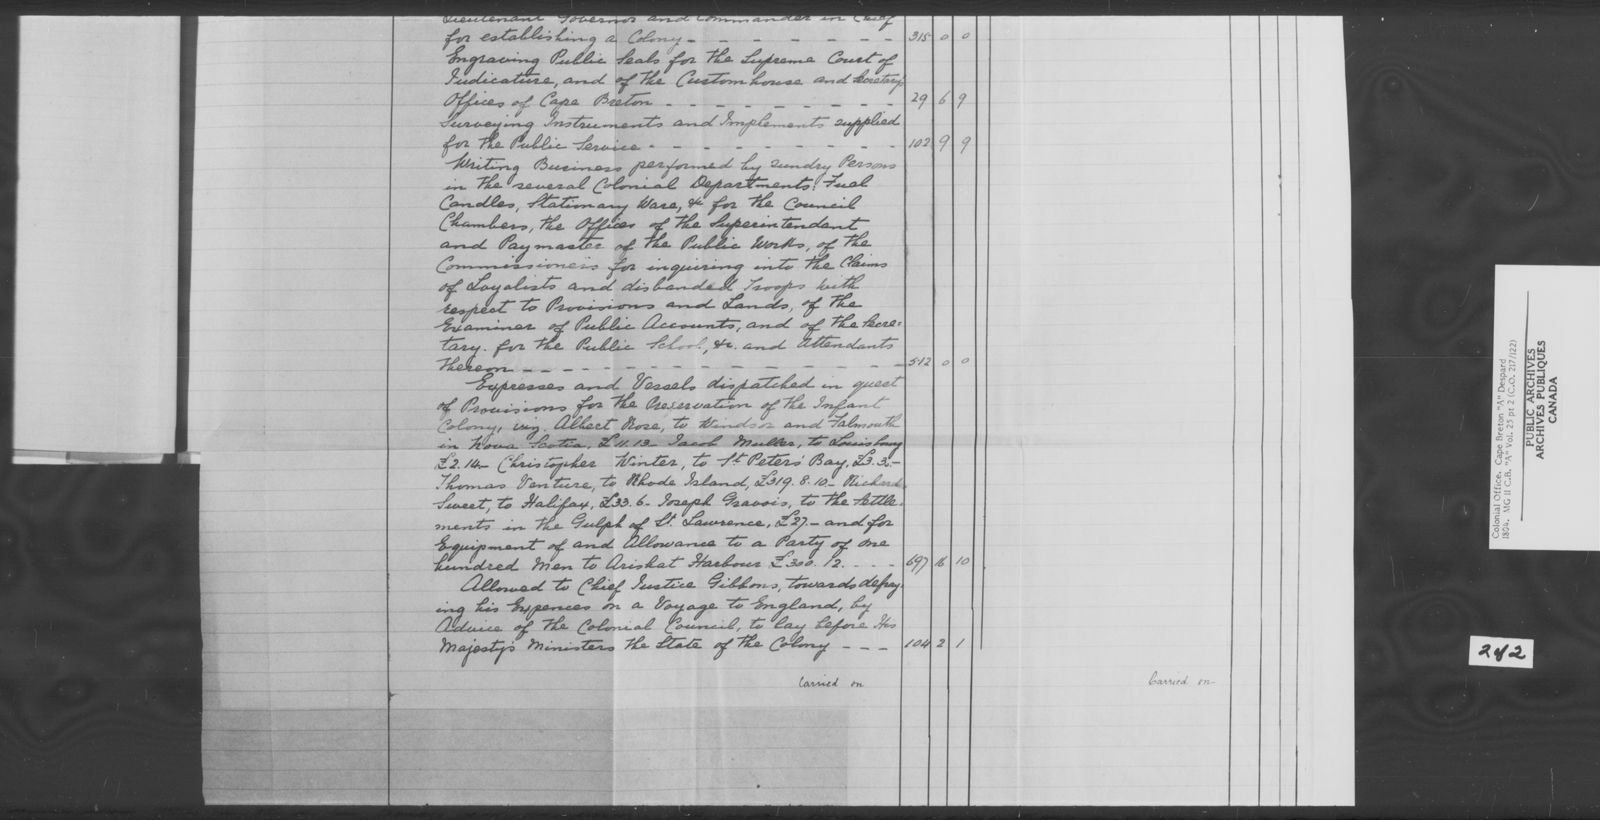 Lieutenant Governor and Commander in Chief
for establishing a Colony - - - - - - - - 315 0 0
Engraving Public Seals for the Supreme Court of
Judicature, and of the Customhouse and Secretarys
Offices of Cape Breton - - - - - - - - - 29 6 9
Surveying Instruments and Implements supplied
for the Public Service - - - - - - - - - 102 9 9
Writing Business performed by sundry Persons
in the several Colonial Departments. Fuel
Candles, Stationary Ware, &c for the Council
Chambers, the Offices of the Superintendent
and Paymaster of the Public Works, of the
Commissioners for inquiring into the Claims
of Loyalists and disbanded Troops with
respect to Provisions and Lands, of the
Examiner of Public Accounts, and of the Secre-
tary. for the Public School, &c. and Attendants
thereon - - - - - - - - - - - - - 512 0 0
Expresses and Vessels dispatched in quest
of Provisions for the Preservation of the Infant
Colony, viz. Albert Rose, to Windsor and Falmouth
in Nova Scotia, £11.13- Jacob Muller, to Louisbourg
£2.14- Christopher Winter, to St Peters' Bay, £3.3.-
Thomas Venture, to Rhode Island, £319.8.10- Richard
Sweet, to Halifax, £33.6- Joseph Gravois, to the Settle-
ments in the Gulph of St. Lawrence, £27.- and for
Equipment of and Allowance to a Party of one
hundred Men to Arishat Harbour £300.12. - - - - 697 16 10
Allowed to Chief Justice Gibbons, towards defray
ing his Expences on a Voyage to England, by
Advice of the Colonial Council, to lay before His
Majesty's Ministers the State of the Colony - - - 104 2 1
Carried on
Carried on
Colonial Office. Cape Breton "A" Despard
1804. MG 11 C.B. "A" Vol. 25 pt 2 (C.O. 217/122)
PUBLIC ARCHIVES
ARCHIVES PUBLIQUES
CANADA
2 of 2